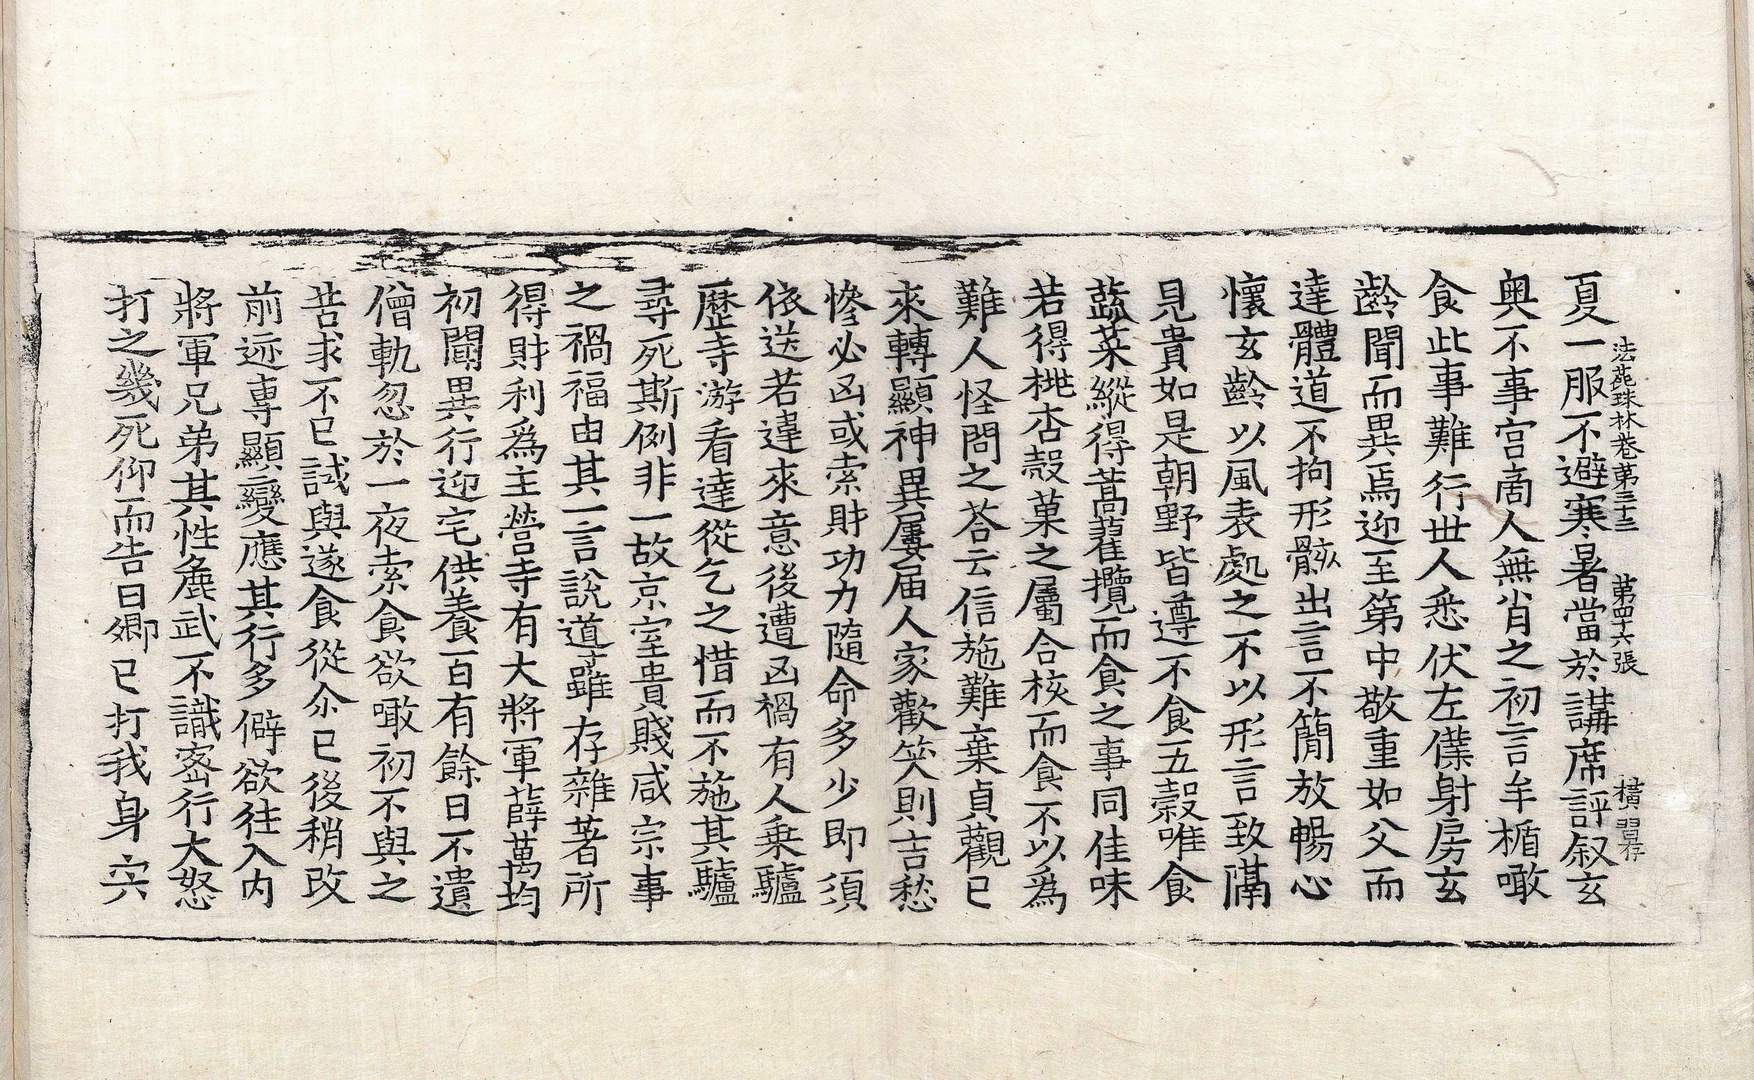 法苑珠林卷第三十三　第四十六張　橫　習存
夏一服不避寒暑當於講席評叙玄
奥不事宮商人無肖之初言牟楯噉
食此事難行丗人悉伏左僕射房玄
齡聞而異焉迎至第中敬重如父而
達體道不拘形骸出言不簡放暢心
懷玄齡以風表處之不以形言致隔
見貴如是朝野皆遵不食五穀唯食
蔬菜縱得蒿藋攬而食之事同佳味
若得桃杏殼菓之屬合核而食不以爲
難人怪問之荅云信施難棄貞觀已
來轉顯神異屢屆人家歡笑則吉愁
慘必凶或索財功力隨命多少即須
依送若違來意後遭凶禍有人乗驢
歷寺游看達從乞之惜而不施其驢
尋死斯例非一故京室貴賤咸宗事
之禍福由其一言說道雖存雜著所
得財利爲主營寺有大將軍薛萬均
初聞異行迎宅供養百有餘日不遺
僧軌忽於一夜索食欲噉初不與之
苦求不已試與遂食從尒已後稍改
前迹專顯變應其行多僻欲往入内
將軍兄弟其性麁武不識密行大怒
打之幾死仰而告曰卿已打我身突